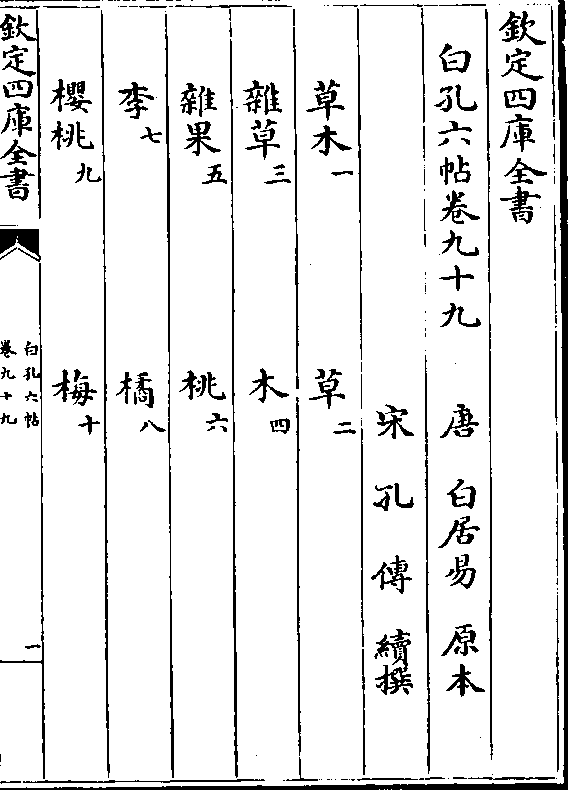 欽定四庫全書
白孔六帖卷九十九 唐 白居易 原本
宋 孔 傳 續撰
草木一 草二
雜草三 木四
雜果五 桃六
李七 橘八
櫻桃九 梅十
欽定四庫全書 白孔六帖 卷九十九 一